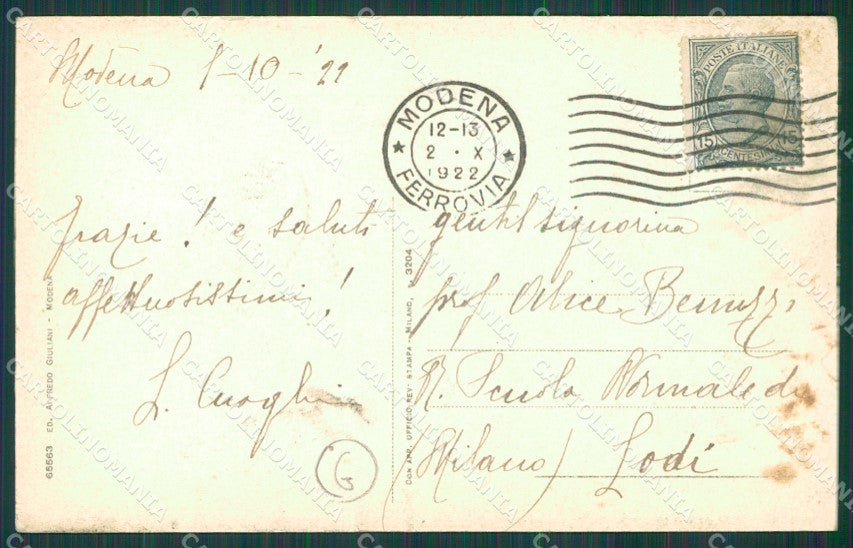 Modena 1-10-'22
MODENA
12-13
2 · X
1922
FERROVIA
POSTE ITALIANE
15 15
CENTESIMI
Grazie! e saluti
affettuosissimi!
L. Cuoghi
G
gentil signorina
prof. Alice
R. Scuola Normale di
(Milano) Lodi
65563 ED. ALFREDO GIULIANI - MODENA
CON APP. UFFICIO REV. STAMPA - MILANO, 3204
CARTOLINOMANIA